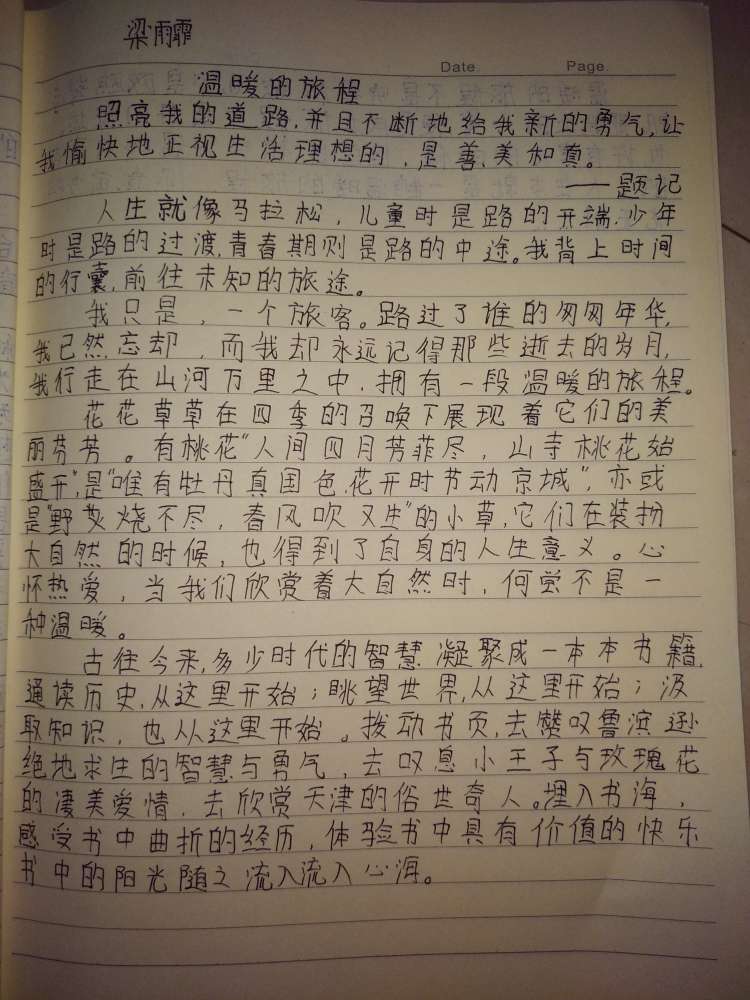 梁雨霏
Date. Page.
温暖的旅程
照亮我的道路,并且不断地给我新的勇气,让
我愉快地正视生活理想的,是善、美和真。
——题记
人生就像马拉松,儿童时是路的开端,少年
时是路的过渡,青春期则是路的中途。我背上时间
的行囊,前往未知的旅途。
我只是,一个旅客。路过了谁的匆匆年华,
我已然忘却,而我却永远记得那些逝去的岁月,
我行走在山河万里之中,拥有一段温暖的旅程。
花花草草在四季的召唤下展现着它们的美
丽芬芳。有桃花"人间四月芳菲尽,山寺桃花始
盛开",是"唯有牡丹真国色,花开时节动京城",亦或
是"野火烧不尽,春风吹又生"的小草,它们在装扮
大自然的时候,也得到了自身的人生意义。心
怀热爱,当我们欣赏着大自然时,何尝不是一
种温暖。
古往今来,多少时代的智慧凝聚成一本本书籍,
通读历史,从这里开始;眺望世界,从这里开始;汲
取知识,也从这里开始。拨动书页,去赞叹鲁滨逊
绝地求生的智慧与勇气,去叹息小王子与玫瑰花
的凄美爱情,去欣赏天津的俗世奇人。埋入书海,
感受书中曲折的经历,体验书中具有价值的快乐
书中的阳光随之流入流入心海。